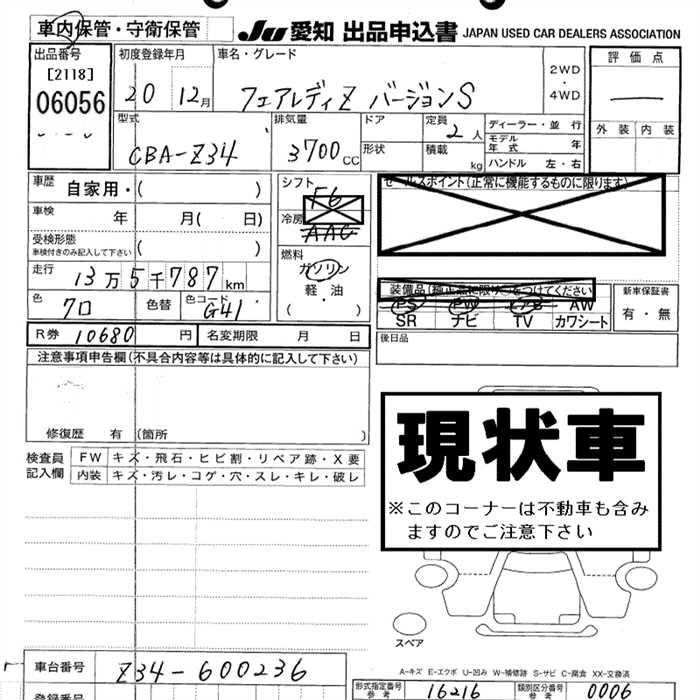 車内保管・守衛保管
JU 愛知 出品申込書 JAPAN USED CAR DEALERS ASSOCIATION
出品番号
[2118]
06056
初度登録年月
20 12月
車名・グレード
フェアレディZ バージョンS
2WD
・
4WD
評価点
外装 内装
型式
CBA-Z34
排気量
3700CC
ドア
形状
定員
2人
積載
kg
ディーラー・並行
モデル年式 年
ハンドル 左・右
車歴 自家用・( )
車検 年 月( 日)
受検形態
車検付きのみ記入して下さい ( )
走行 13万5千787km
色 クロ
色替
色コード G41
シフト F6
冷房 AAC
燃料
ガソリン
軽・油
( )
セールスポイント(正常に機能するものに限ります)
装備品
をつけてください
PS PW AW
SR ナビ TV カワシート
新車保証書
有・無
R券 10680 円 名変期限 月 日
後日品
注意事項申告欄(不具合内容等は具体的に記入して下さい)
修復歴 有 (箇所 )
検査員記入欄
FW キズ・飛石・ヒビ割・リペア跡・X要
内装 キズ・汚レ・コゲ・穴・スレ・キレ・破レ
現状車
※このコーナーは不動車も含み
ますのでご注意下さい
スペア
A-キズ E-エクボ U-凹み W-補修跡 S-サビ C-腐食 XX-交換済
車台番号 Z34-600236
登録番号
形式指定番号
参考
16216
類別区分番号
参考
0006